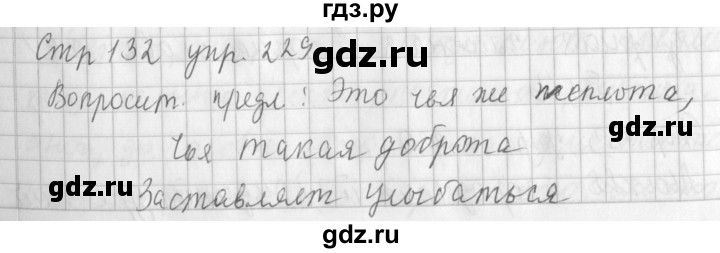 гдз.ру
Стр 132 упр. 229
gdz.ru
Вопросит. предл: Это чья же теплота,
gdz.ru
Чья такая доброта
gdz.ru
Заставляет улыбаться
gdz.ru